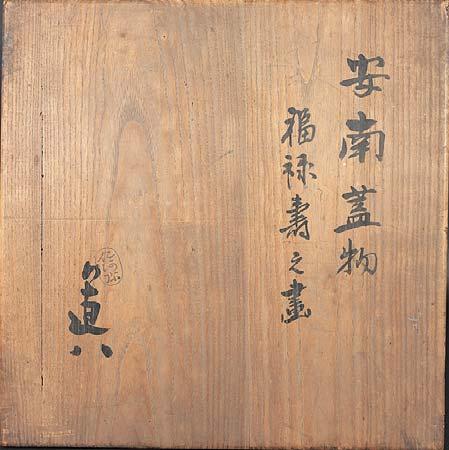 安南蓋物
福禄壽之畫
直八